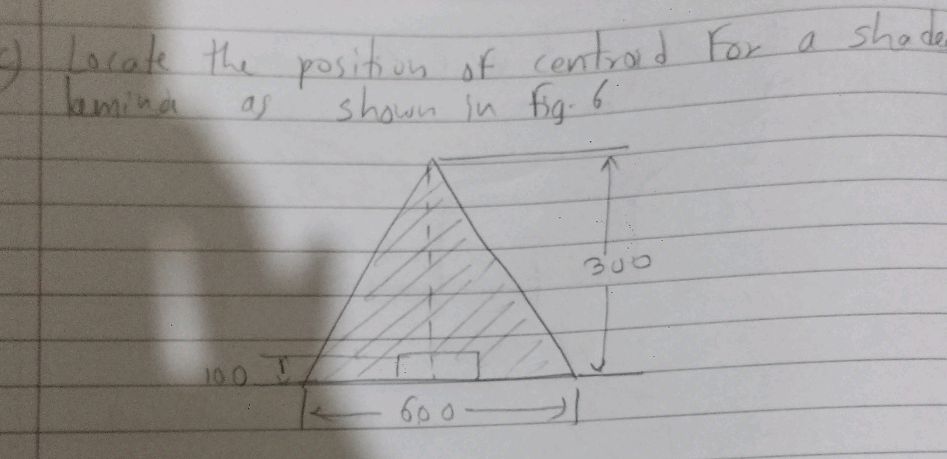 c) Locate the position of centroid For a shade
lamina as shown in fig. 6
300
100
600